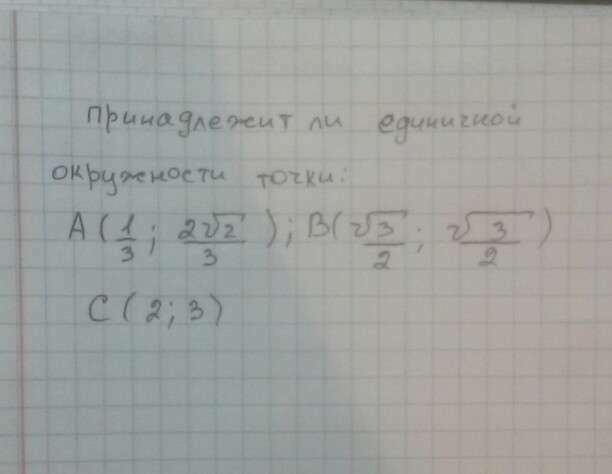 принадлежит ли единичной
окружности точки:
A(1/3; 2√2/3); B(√3/2; √3/2)
C(2;3)